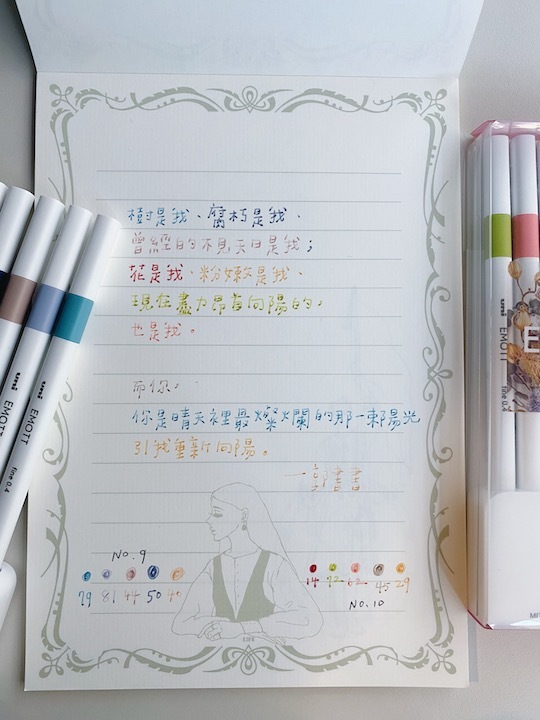 樹是我、腐朽是我、
曾經的不見天日是我；
花是我、粉嫩是我、
現在盡力昂首向陽的，
也是我。
而你，
你是晴天裡最燦爛的那一束陽光
引我重新向陽。
—郭書書
No.9
79 81 44 50 40
14 72 62 45 29
No.10
uni EMOTT fine 0.4
uni EMOTT fine 0.4
uni EMOTT fine 0.4